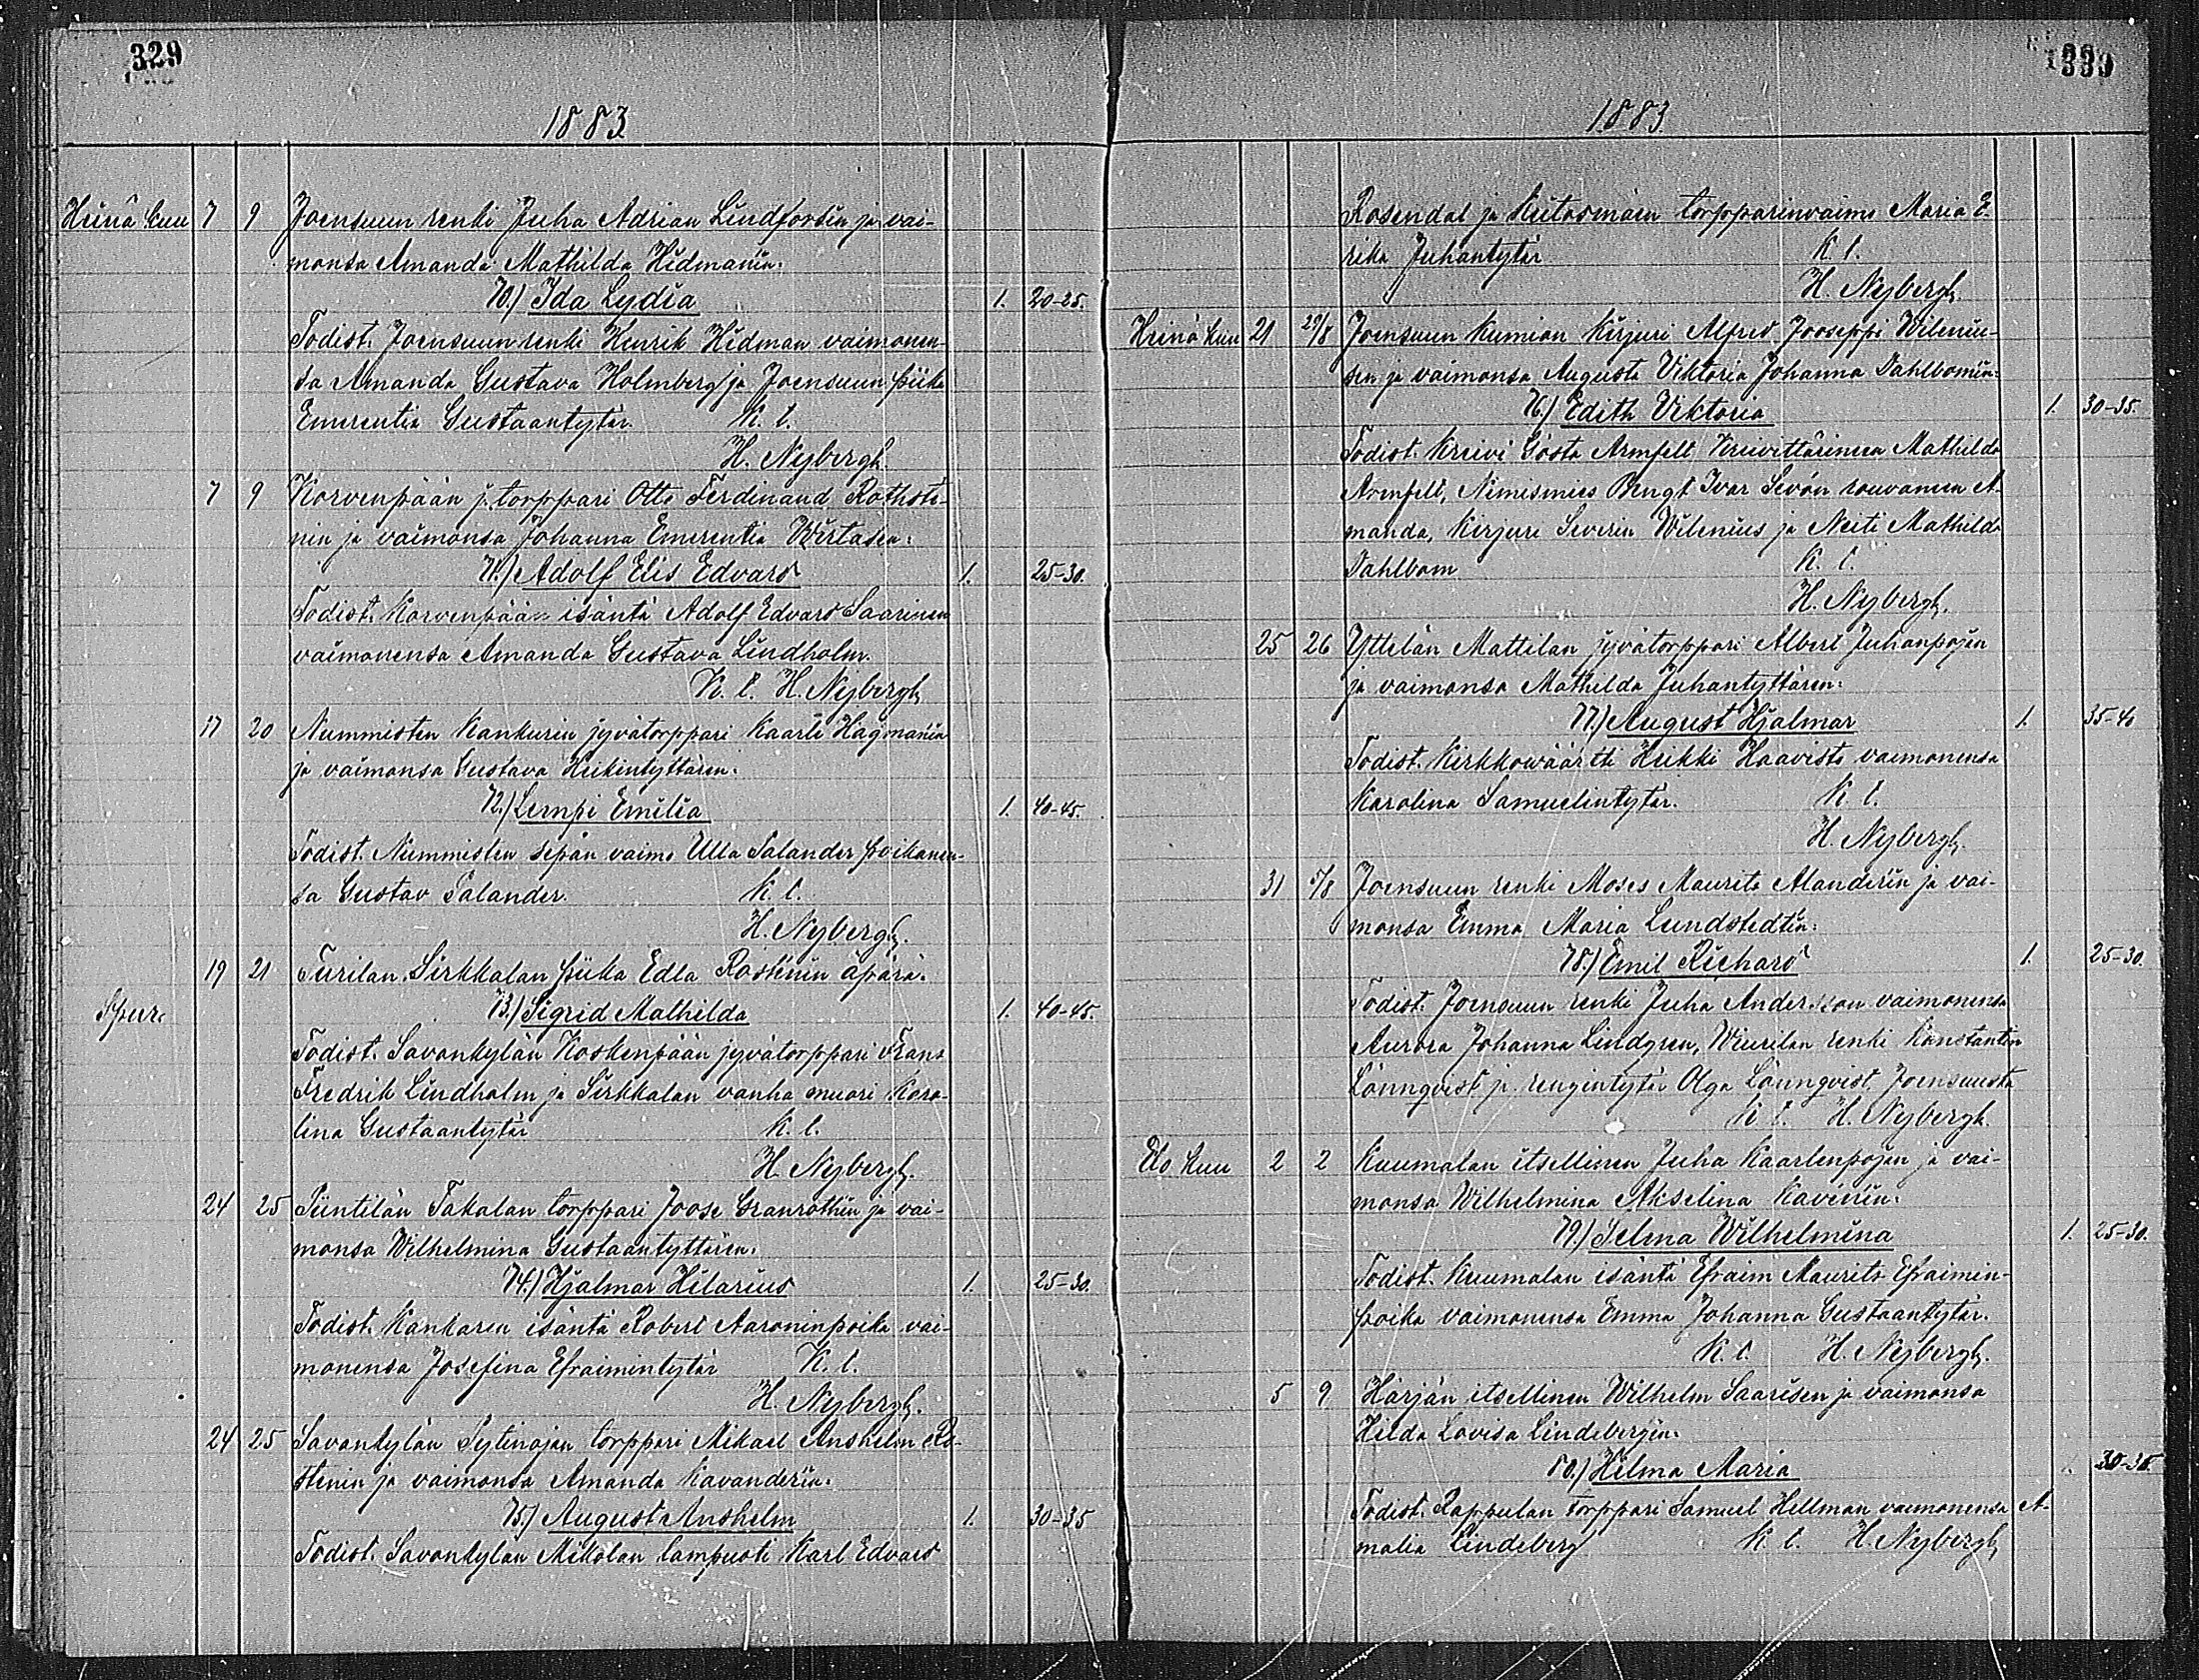 329
1883
Heinä kuu 7 9 Joensuun renki Juha Adrian Lindforsin ja vai-
monsa Amanda Mathilda Hidmanin:
70.) Ida Lydia 1. 20-25.
Todist. Joensuun renki Henrik Hidman vaimonen-
sa Amanda Gustava Holmberg ja Joensuun piika
Emerentia Gustaantytär. K. t.
H. Nybergh.
7 9 Korvenpään j. torppari Otto Ferdinand Rothste-
nin ja vaimonsa Johanna Emerentia Wirtasen:
71.) Adolf Elis Edvard 1. 25-30.
Todist. Korvenpään isäntä Adolf Edvard Saarinen
vaimonensa Amanda Gustava Lindholm.
K. t. H. Nybergh
17 20 Nummisten Kankurin jyvätorppari Kaarle Hagmanin
ja vaimonsa Gustava Heikintyttären:
72.) Lempi Emilia 1. 40-45.
Todist. Nummisten sepän vaimo Ulla Salander poikanen-
sa Gustav Salander. K. t.
H. Nybergh.
19 21 Turilan Sirkkalan piika Edla Rostenin äpärä:
Spur. 73.) Sigrid Mathilda 1. 40-45.
Todist. Savonkylän Koskenpään jyvätorppari Frans
Fredrik Lindholm ja Sirkkalan vanha muori Karo-
lina Gustaantytär K. t.
H. Nybergh.
24 25 Piintilän Takalan torppari Joose Granrothin ja vai-
monsa Wilhelmina Gustaantyttären:
74.) Hjalmar Hilarius 1. 25-30.
Todist. Kankaren isäntä Robert Aaroninpoika vai-
monensa Josefina Efraimintytär K. t.
H. Nybergh.
24 25 Savonkylän Sytinojan torppari Mikael Anshelm Ro-
stenin ja vaimonsa Amanda Kavanderin:
75.) August Anshelm 1. 30-35
Todist. Savonkylän Mikolan lampuoti Karl Edvard
330
1883
Rosendal ja Keitaomäen torpparinvaimo Maria E-
rika Juhantytär K. t.
H. Nybergh.
Heinä kuu 21 29/8 Joensuun Kumion Kirjuri Alfred Jooseppi Wileniu-
sen ja vaimonsa Augusta Viktoria Johanna Dahlbomin:
76.) Edith Viktoria 1. 30-35.
Todist. Kreivi Gösta Armfelt Kreivittärineen Mathilda
Armfelt, Nimismies Bengt Ivar Sevón rouvaneen A-
manda, Kirjuri Severin Wilenius ja Neiti Mathilda
Dahlbom K. t.
H. Nybergh.
25 26 Yttelän Mattilan jyvätorppari Albert Juhanpojan
ja vaimonsa Mathilda Juhantyttären:
77.) August Hjalmar 1. 35-40
Todist. Kirkkowäärtti Heikki Haavisto vaimonensa
Karolina Samuelintytär. K. t.
H. Nybergh.
31 5/8 Joensuun renki Moses Maurits Alanderin ja vai-
monsa Emma Maria Lundstedtin:
78.) Emil Richard 1. 25-30.
Todist. Joensuun renki Juha Andersson vaimonensa
Aurora Johanna Lindgren, Wiurilan renki Konstantin
Lönnqvist ja rengintytär Olga Lönnqvist Joensuusta
K. t. H. Nybergh.
Elo kuu 2 2 Kuumalan itsellinen Juha Kaarlenpojan ja vai-
monsa Wilhelmina Akselina Kavenin:
79.) Selma Wilhelmina 1. 25-30.
Todist. Kuumalan isäntä Efraim Maurits Efraimin-
poika vaimonensa Emma Johanna Gustaantytär.
K. t. H. Nybergh.
5 9 Härjän itsellinen Wilhelm Saarisen ja vaimonsa
Hilda Lovisa Lindebergin:
80.) Hilma Maria 30-35.
Todist. Rappulan torppari Samuel Hellman vaimonensa A-
malia Lindeberg K. t. H. Nybergh